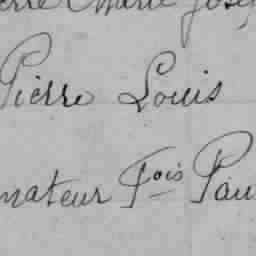 Pierre Marie Josep
Pierre Louis
mateur Fois Pau